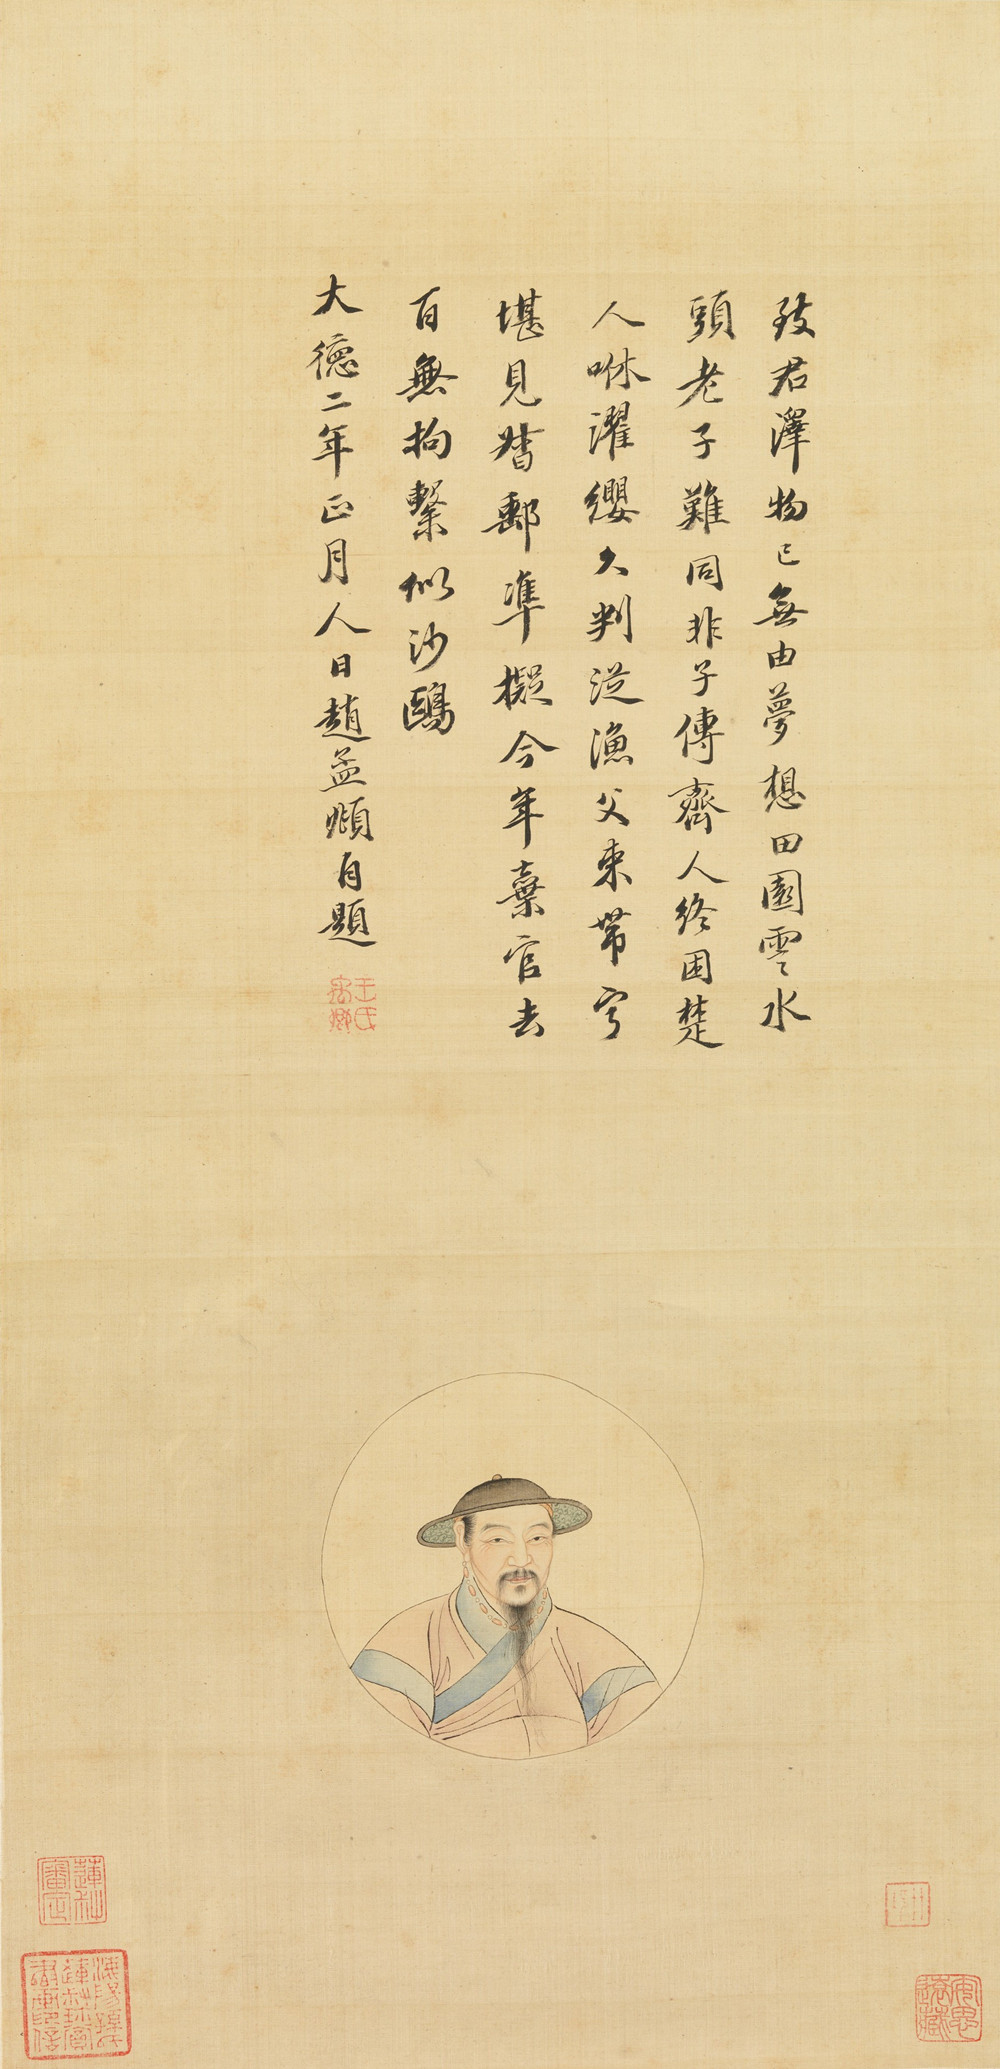 致君澤物已無由夢想田園雲水
頭老子難同非子傳齊人終困楚
人咻濯纓久判從漁父束帶寧
堪見督郵準擬今年棄官去
百無拘繫似沙鷗
大德二年正月人日趙孟頫自題
王氏禹卿
安思遠藏